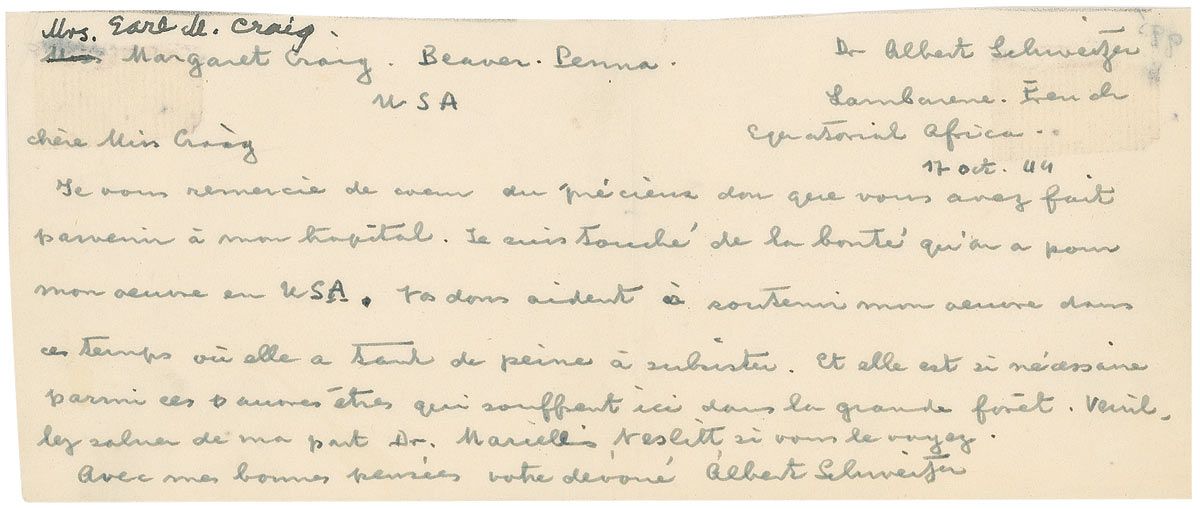 Mrs. Earl M. Craig.
Miss Margaret Craig. Beaver. Penna.
USA
Dr Albert Schweitzer
Lambarene. French
Equatorial Africa..
17 oct. 44
chère Miss Craig
Je vous remercie de coeur du précieux don que vous avez fait
parvenir à mon hopital. Je suis touché de la bonté qu'on a pour
mon oeuvre en USA. Vos dons aident à soutenir mon oeuvre dans
ces temps où elle a tant de peine à subsister. Et elle est si nécessaire
parmi ces pauvres êtres qui souffrent ici dans la grande forêt. Veuil-
lez saluer de ma part Dr. Nesbitt si vous le voyez.
Avec mes bonnes pensées votre dévoué Albert Schweitzer